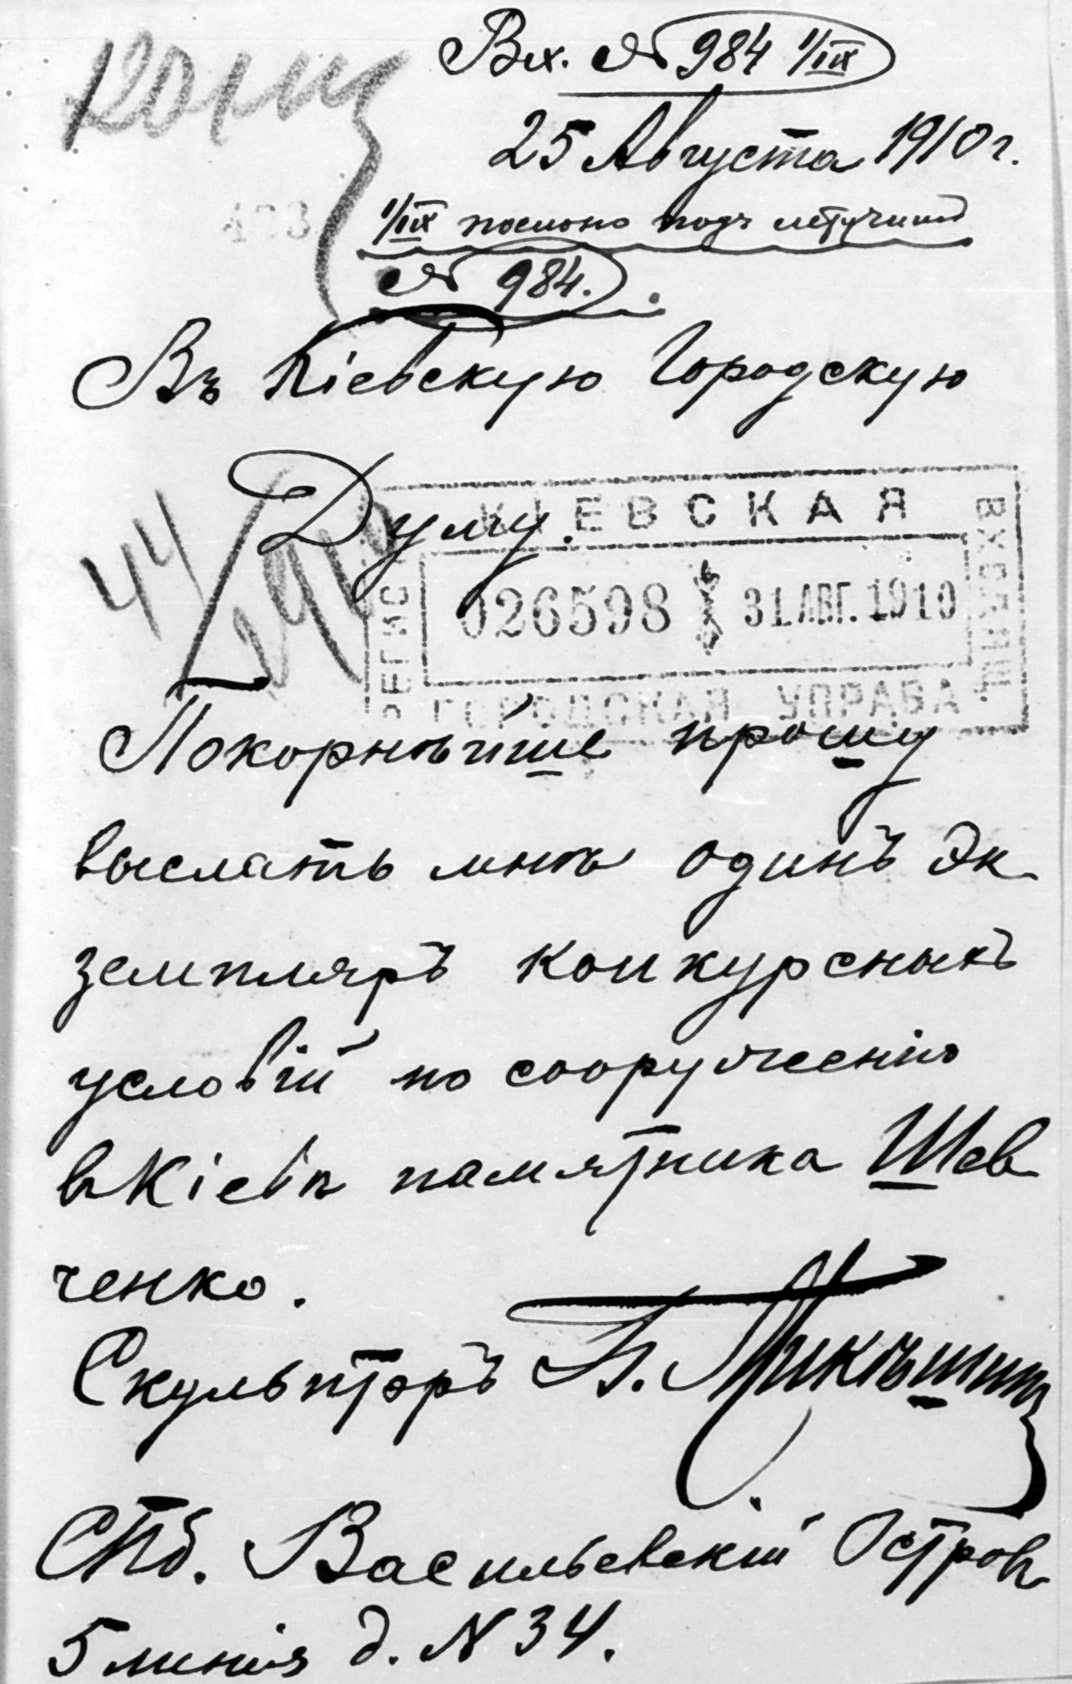 Вх. № 984 1/IX
25 Августа 1910 г.
1/IX послано подъ летучимъ
№ 984.
Въ Кіевскую Городскую
Думу.
44
КІЕВСКАЯ
ВХОДЯЩ
РЕГИС
026598 31 АВГ. 1910
ГОРОДСКАЯ УПРАВА
Покорнѣйше прошу
выслать мнѣ одинъ Эк
земпляръ конкурсныхъ
условій по сооруженію
в Кіевѣ памятника Шев
ченко.
Скульпторъ Б. Микѣшинъ
СПб. Васильевскій Островъ
5 линія д. N 34.